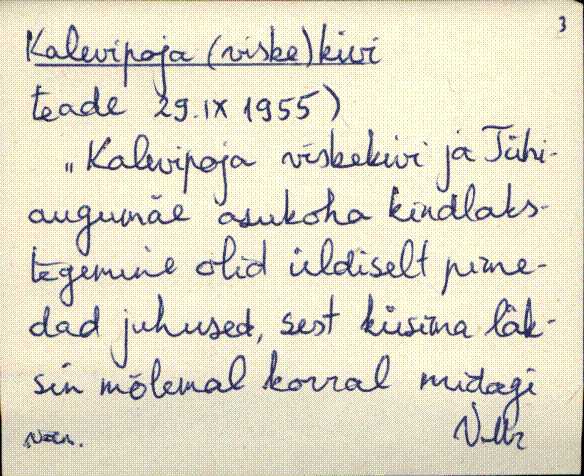 3
Kalevipoja (viske)kivi
teade 29.IX 1955)
„Kalevipoja viskekivi ja Tühi-
augumäe asukoha kindlaks-
tegemine olid üldiselt pime-
dad juhused, sest küsima läk-
sin mõlemal korral midagi